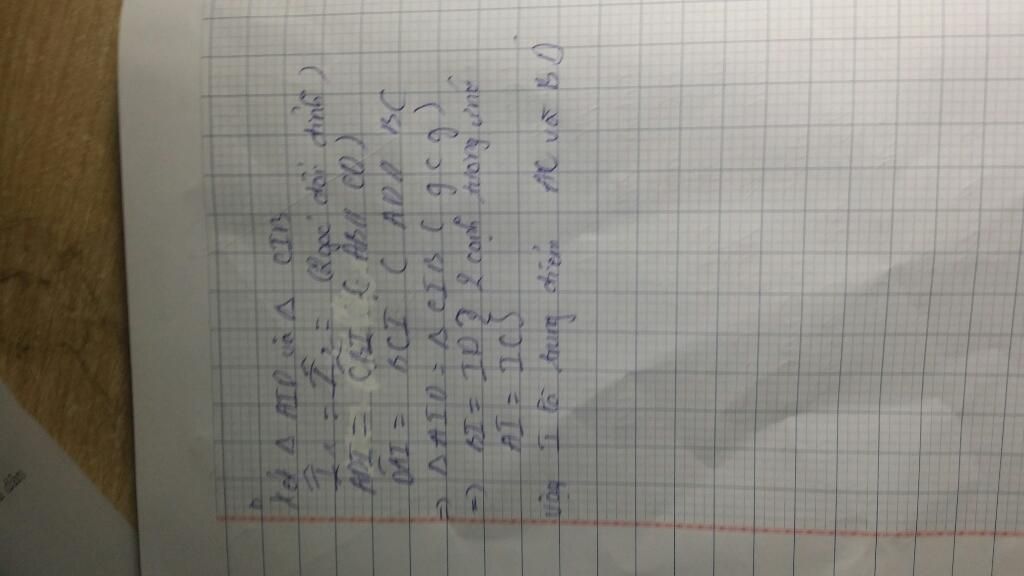 b
Xét Δ AID và Δ CIB
Î1 = Î2 = (2 góc đối đỉnh)
ADI = CBI ( AB // CD)
DAI = BCI ( AD // BC
=> Δ AID = Δ CIB ( g c g )
=> BI = ID } 2 cạnh tương ứng
AI = IC }
Vậy I là trung điểm AC và BD